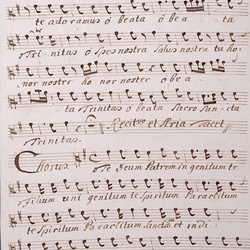 te adoramus ô beata ô bea ta
Trinitas ô spes nostra salus nostra tu ho
nor noster ho nor noster ô be a
ta Trinitas ô beata Sacro San cta
Recit: et Aria tacet
Trinitas.
Chorus Te Deum Patrem in genitum te
Filium uni genitum te Spiritum Paraclitum
te Spiritum Paraclitum Sanctam et indi